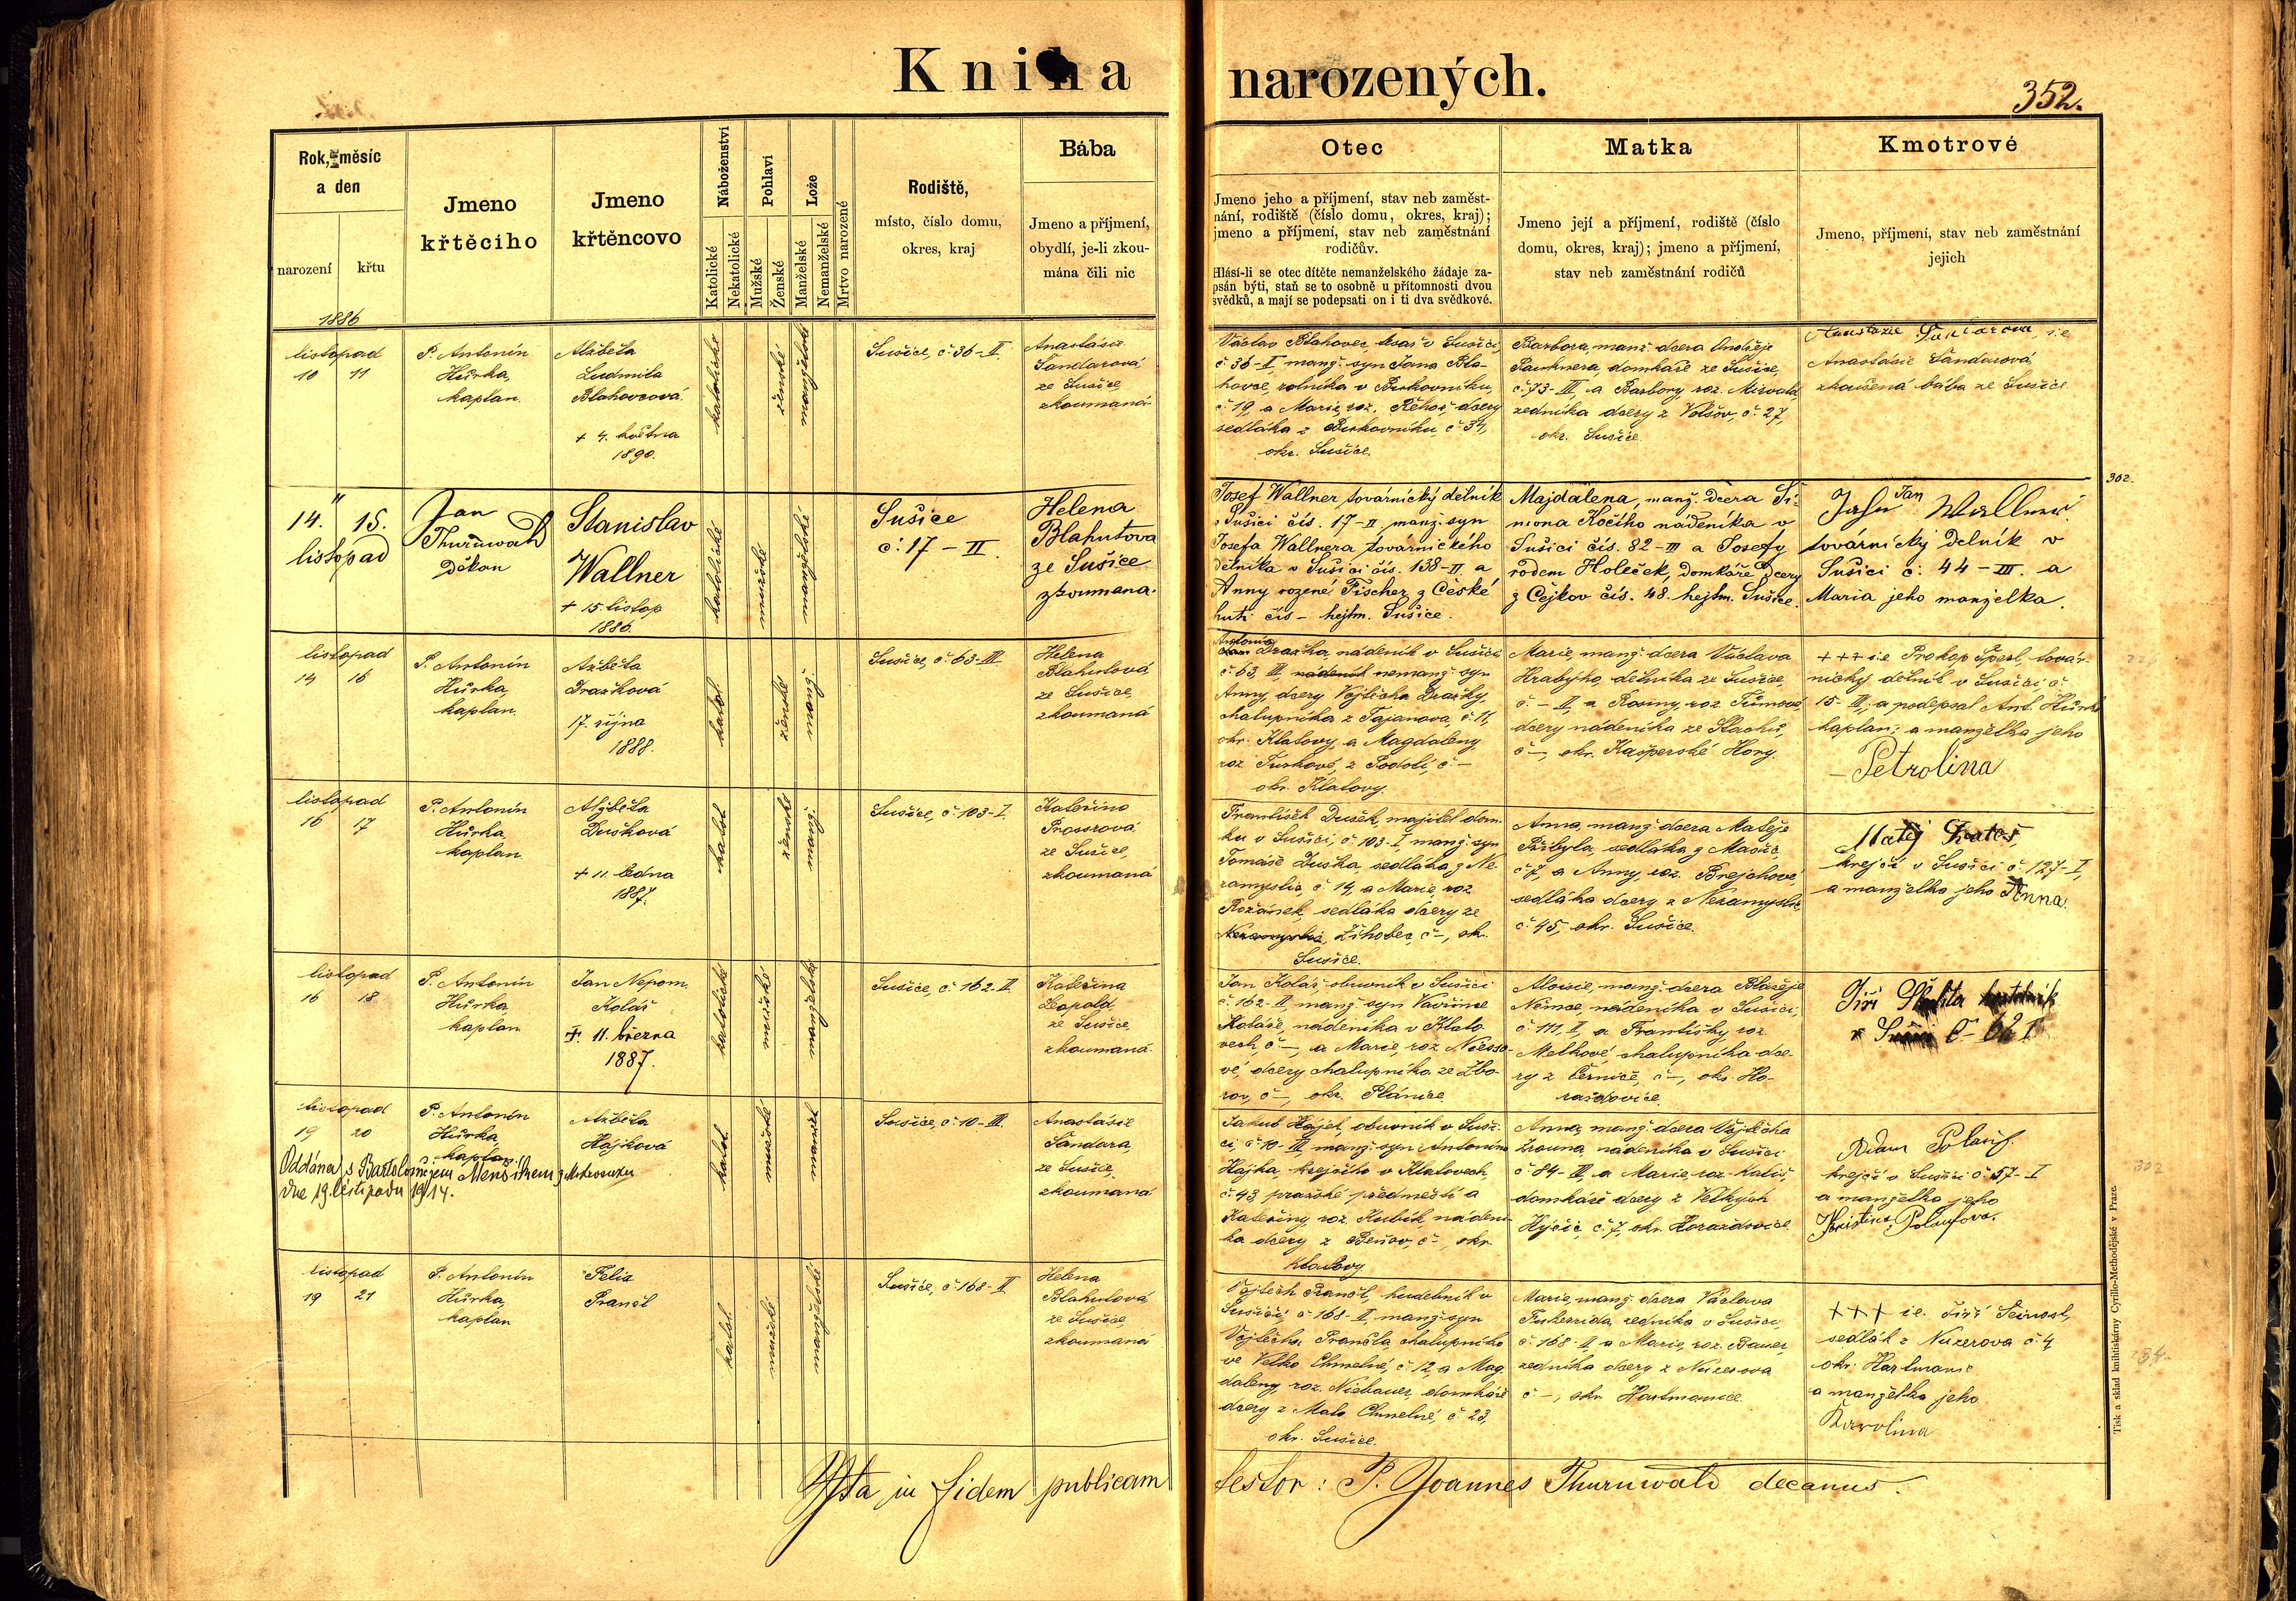 Kniha narozených.
352.
Rok, měsíc
a den
narození
křtu
Jmeno
křtěcího
Jmeno
křtěncovo
Náboženství
Katolické
Nekatolické
Pohlaví
Mužské
Ženské
Lože
Manželské
Nemanželské
Mrtvo narozené
Rodiště,
místo, číslo domu,
okres, kraj
Bába
Jmeno a příjmení,
obydlí, je-li zkou-
mána čili nic
Otec
Jmeno jeho a příjmení, stav neb zaměst-
nání, rodiště (číslo domu, okres, kraj);
jmeno a příjmení, stav neb zaměstnání
rodičův.
Hlásí-li se otec dítěte nemanželského žádaje za-
psán býti, staň se to osobně u přítomnosti dvou
svědků, a mají se podepsati on i ti dva svědkové.
Matka
Jmeno její a příjmení, rodiště (číslo
domu, okres, kraj); jmeno a příjmení,
stav neb zaměstnání rodičů
Kmotrové
Jmeno, příjmení, stav neb zaměstnání
jejich
1886
listopad
10 11
P. Antonín
Hůrka,
kaplan.
Alžběta
Ludmila
Blahovcová
+ 4. května
1890.
katolické
ženské
manželské
Sušice, č. 36-II.
Anastásie
Šandarová
ze Sušice
zkoumaná
Václav Blahovec, tesař v Sušici,
č. 36-II, manž. syn Jana Bla-
hovce, rolníka v Burkovníku,
č. 19, a Marie, roz. Řehoř, dcery
sedláka z Burkovníku, č. 34,
okr. Sušice.
Barbora, manž. dcera Ondřeje
domkáře ze Sušice,
č. 73-III, a Barbory, roz.
zedníka dcery z Volšov, č. 27,
okr. Sušice.
Anastázie i.e.
Anastásie Šandarová,
zkoušená bába ze Sušice
14. " 15.
listopad
Jan
Thurnwald
děkan
Stanislav
Wallner
+ 15 listop
1886.
katolické
mužské
manželské
Sušice
č. 17 – II.
Helena
Blahutova
ze Sušice
zkoumana.
302.
Josef Wallner, továrnický dělník
v Sušici čís. 17-II. manž. syn
Josefa Wallnera továrnického
dělníka v Sušici čís. 138-II. a
Anny rozené Fischer z České
huti čís – hejtm. Sušice.
Majdalena, manž. dcera Ši-
mona Kočího nádeníka v
Sušici čís. 82-III a Josefy
rodem Holeček, domkáře dcery
z Čejkov čís. 48. hejtm. Sušice.
Jan
Wallner
továrnický dělník v
Sušici č. 44-III. a
Maria jeho manželka.
listopad
14 16
P. Antonín
Hůrka,
kaplan.
Alžběta
Dražková
17. října
1888.
katol.
ženské
manž.
Sušice, č. 63-III.
Helena
Blahutová,
ze Sušice,
zkoumaná
Antonín
Dražka, nádeník v Sušici
č. 63, III, nádeník nemanž. syn
Anny, dcery Vojtěcha Dražky,
chalupníka z Tajanova, č. 11,
okr. Klatovy, a Magdaleny,
roz. Turkové, z Podolí, č –
okr. Klatovy.
Marie, manž. dcera Václava
Hrabýho, dělníka ze Sušice,
č. – II, a Rosiny, roz. Tůmové,
dcery nádeníka ze Stachů,
č –, okr. Kašperské Hory.
+++ i.e. Prokop Šperl, továr-
nický dělník v Sušici č.
15-III; a podepsal Ant. Hůrka
kaplan; a manželka jeho
– Petrolina
listopad
16 17
P. Antonín
Hůrka,
kaplan.
Alžběta
Dušková
+ 11. ledna
1887.
katol.
ženské
manž.
Sušice, č. 103-I.
Kateřina
Prosrová
ze Sušice,
zkoumaná
František Dušek, majitel dom-
ku v Sušici, č. 103-I, manž. syn
Tomáše Duška, sedláka z Ne-
zamyslic, č. 14, a Marie, roz.
Rožánek, sedláka dcery ze
Nezamyslic, Žihobec, č –, okr.
Sušice.
Anna, manž. dcera Matěje
Přibyla, sedláka z Mačic,
č. 7, a Anny, roz. Brejchové,
sedláka dcery z Nezamyslic,
č. 45, okr. Sušice.
Matěj
krejčí v Sušici č. 127-I,
a manželka jeho Anna.
listopad
16 18.
P. Antonín
Hůrka,
kaplan
Jan Nepom.
Kolář
+. 11. března
1887.
katolické
mužské
manželské
Sušice, č. 162-II.
Kateřina
Leopold
ze Sušice,
zkoumaná.
Jan Kolář, obuvník v Sušici
č. 162-II, manž. syn Vavřince
Koláře, nádeníka v Klato-
vech, č –, a Marie, roz.
vé, dcery chalupníka ze Zbo-
rov, č –, okr. Plánice
Aloisie, manž. dcera Blažeje
Němce, nádeníka v Sušici,
č. 111, II, a Františky, roz.
Melkové, chalupníka dce-
ry z Černíče, č –, okr. Ho-
ražďovice.
Jiří
v Sušici č – 62 I
listopad
19 20
P. Antonín
Hůrka,
kaplan.
Alžběta
Hájková
Oddána s Bartolomějem Menšíkem z Mokrosuku
dne 19. listopadu 1914.
katol.
mužské
manžel
Sušice, č. 10-III.
Anastásie
Šandara,
ze Sušice,
zkoumaná
Jakub Hájek, obuvník v Suši-
ci č. 10-III, manž. syn Antonína
Hájka, krejčího v Klatovech,
č. 43 pražské předměstí a
Kateřiny, roz. Kubík, nádení-
ka dcery z Beňov, č –, okr.
Klatovy
Anna, manž. dcera Vojtěcha
nádeníka v Sušici
č. 84-III, a Marie, roz. Kališ,
domkáře dcery z Velkých
Hýčic, č. 7, okr. Horažďovice.
Adam
krejčí v Sušici č. 57-I
a manželka jeho
302
listopad
19 21
P. Antonín
Hůrka,
kaplan
Felix
Prančl
katol.
mužské
manželské
Sušice, č. 168-II.
Helena
Blahutová
ze Sušice,
zkoumaná
Vojtěch Prančl, hudebník v
Sušici, č. 168-II, manž. syn
Vojtěcha Prančla, chalupníka
ve Velko Chmelné, č. 12, a Mag-
daleny, roz. Niebauer, domkáře
dcery z Malo Chmelné, č. 23,
okr. Sušice.
Marie, manž. dcera Václava
zedníka v Sušici
č. 168-II, a Marie, roz. Bauer,
zedníka dcery z Nuzerova
č –, okr. Hartmanice.
+++ i.e. Jiří
sedlák z Nuzerova č. 4
okr. Hartmanic
a manželka jeho
Karolina
Ita in fidem publicam testor: P. Joannes Thurnwald decanus.
Tisk a sklad knihtiskárny Cyrillo-Methodějské v Praze.